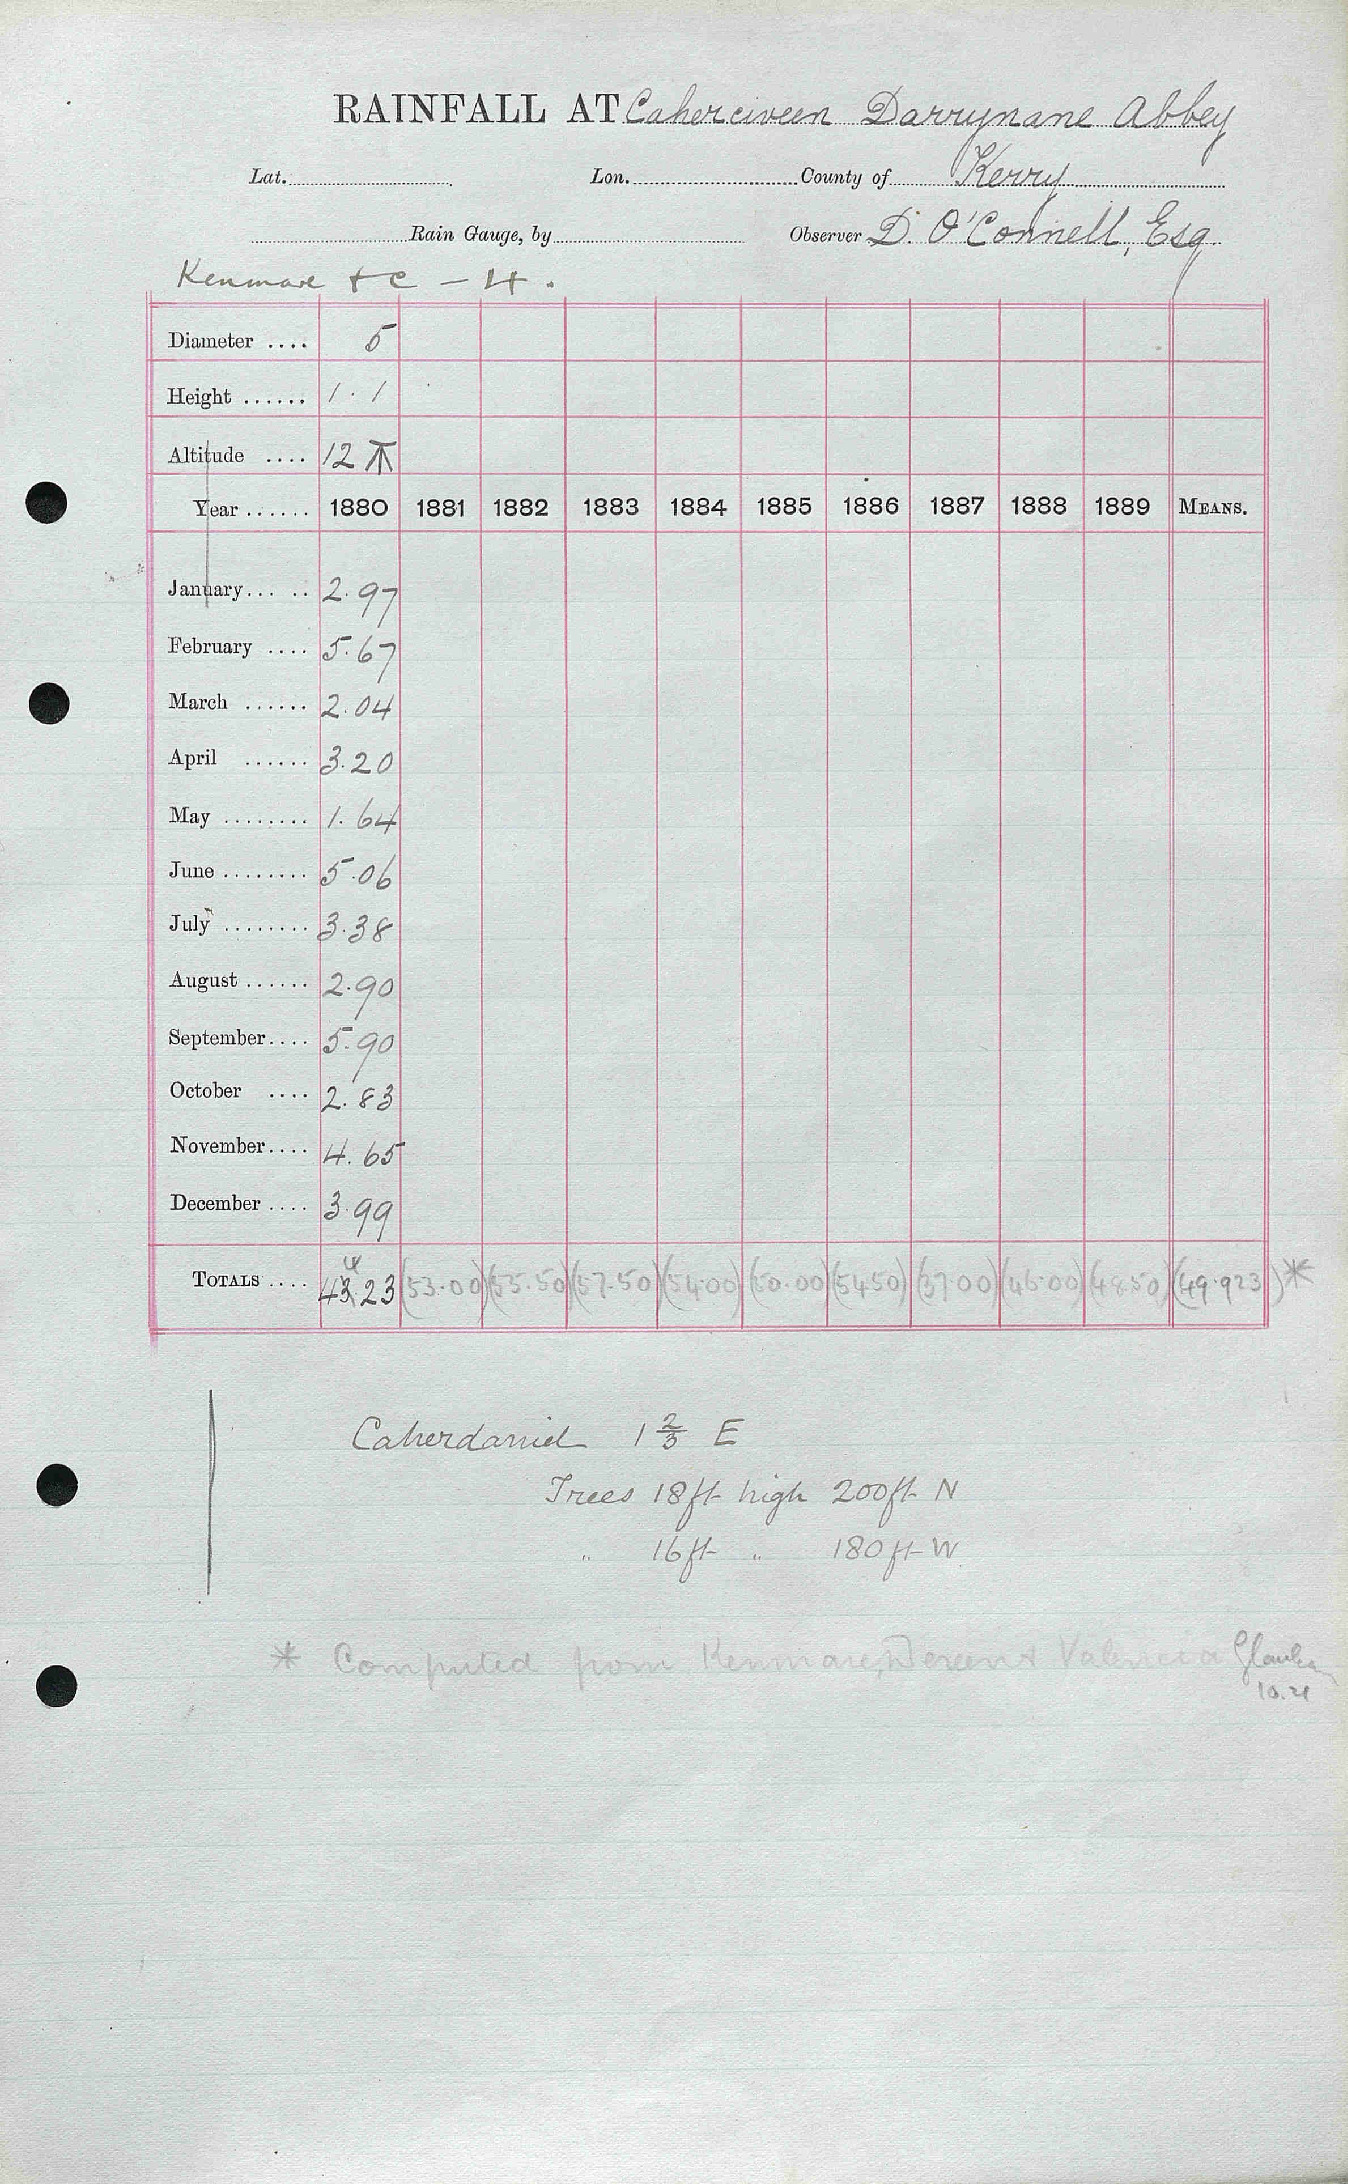 RAINFALL AT Caherciveen Darrynane Abbey
Lat. Lon. County of Kerry
Rain Gauge, by Observer D. O'Connell, Esq
Kenmare + C – 4.
Diameter .... 5
Height ...... 1.1
Altitude .... 12
Year ...... 1880 1881 1882 1883 1884 1885 1886 1887 1888 1889 MEANS.
January... .. 2.97
February .... 5.67
March ...... 2.04
April ...... 3.20
May ........ 1.64
June ........ 5.06
July ........ 3.38
August ...... 2.90
September.... 5.90
October .... 2.83
November.... 4.65
December .... 3.99
4
TOTALS .... 43.23 (53.00) (55.50) (57.50) (54.00) (50.00) (54.50) (37.00) (46.00) (48.50) (49.923) *
Caherdaniel 1 2/3 E
Trees 18ft high 200ft N
" 16ft " 180ft W
* Computed from Kenmare, Dereen & Valencia
10.21